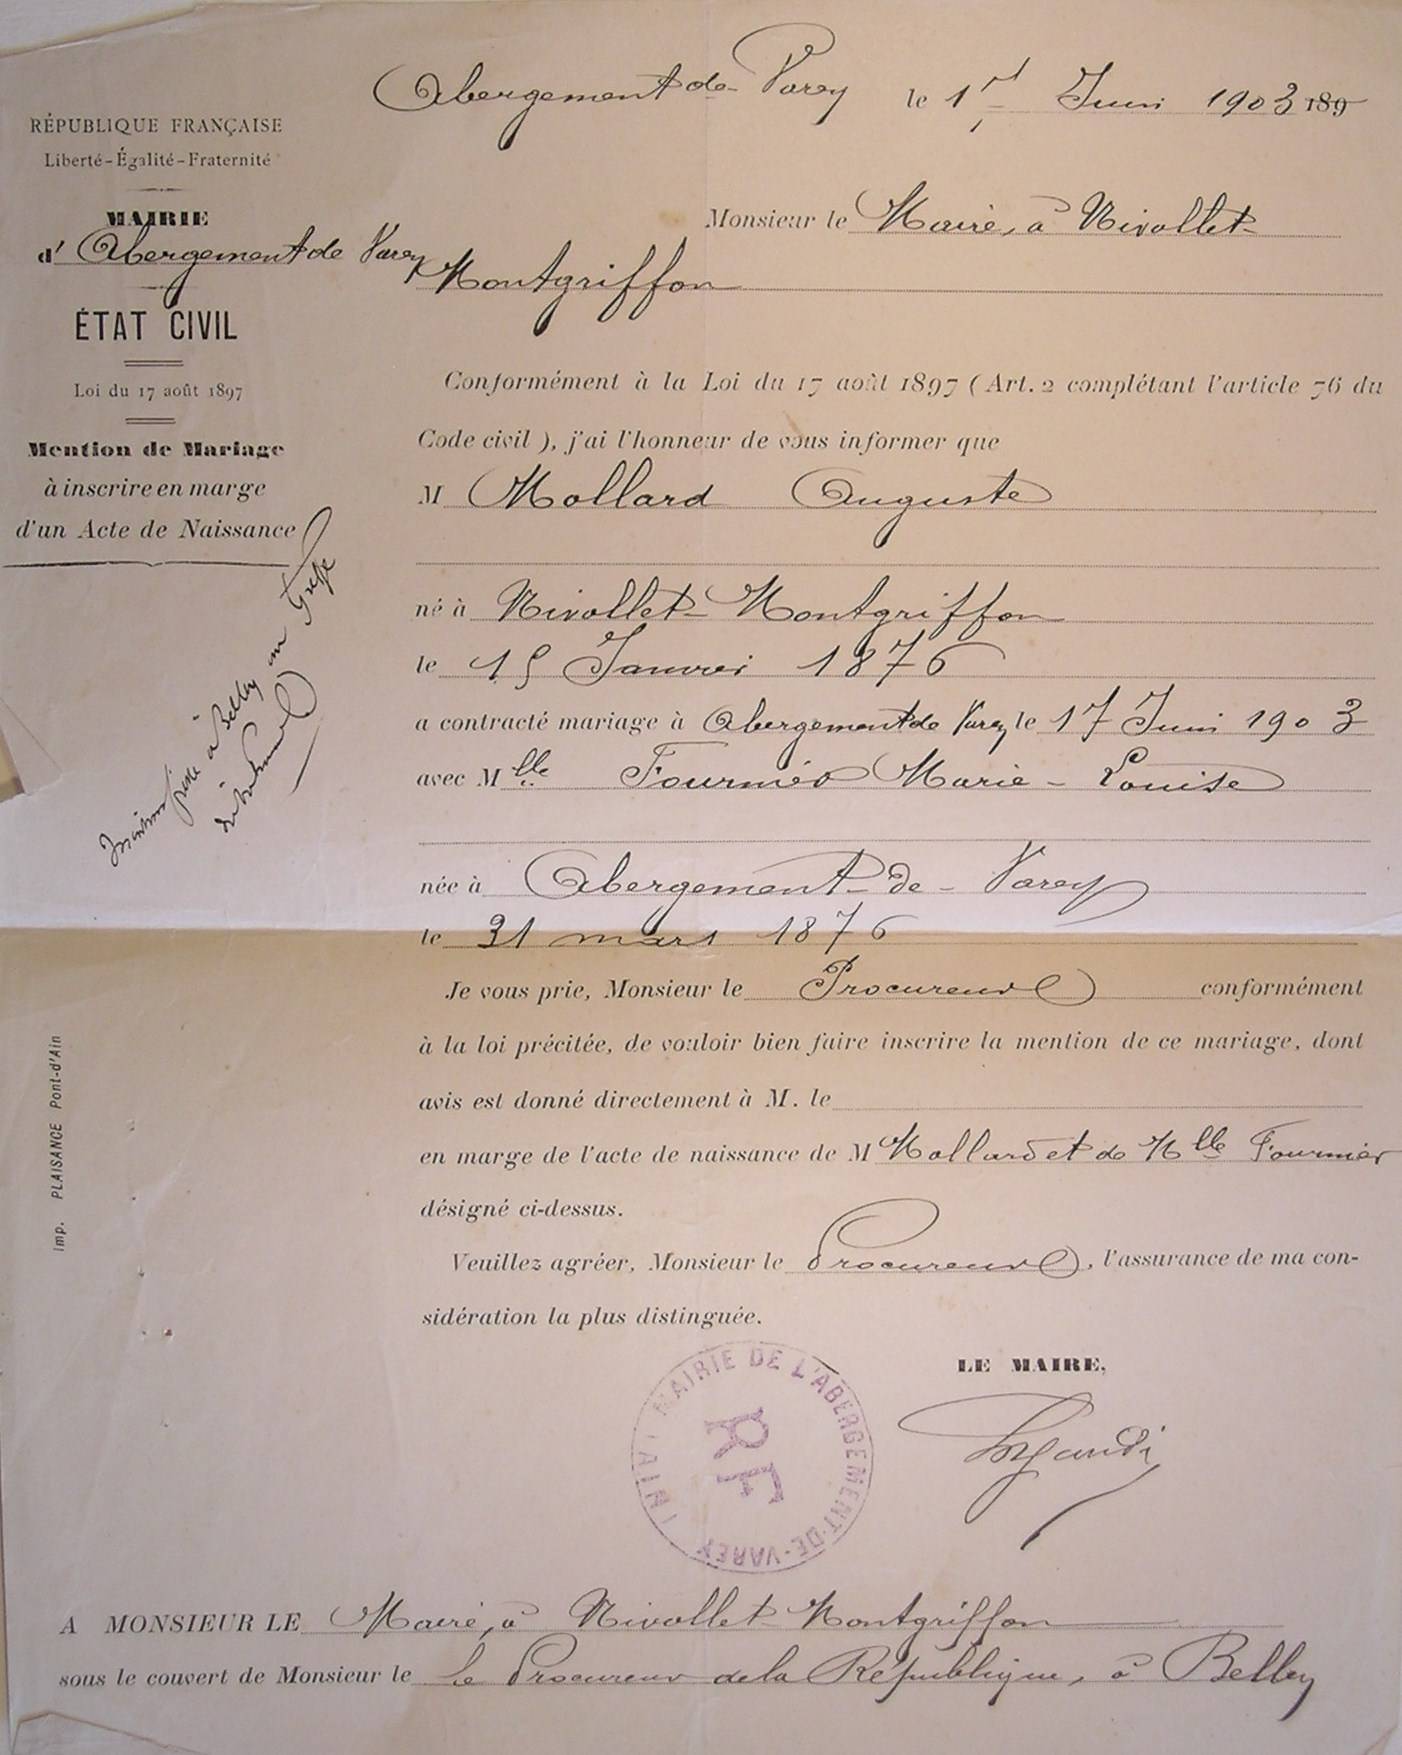 Abergement de Varey le 1er Juin 1903 189
RÉPUBLIQUE FRANÇAISE
Liberté-Égalité-Fraternité
MAIRIE
d' Abergement de Varey
ÉTAT CIVIL
Loi du 17 août 1897
Mention de Mariage
à inscrire en marge
d'un Acte de Naissance
à Belley au Greffe
Monsieur le Maire, à Nivollet-
Montgriffon
Conformément à la Loi du 17 août 1897 (Art. 2 complétant l'article 76 du
Code civil), j'ai l'honneur de vous informer que
M Mollard Auguste
né à Nivollet-Montgriffon
le 15 Janvier 1876
a contracté mariage à Abergement de Varey le 17 Juin 1903
avec Mlle Fournier Marie-Louise
née à Abergement-de-Varey
le 31 mars 1876
Je vous prie, Monsieur le Procureur conformément
à la loi précitée, de vouloir bien faire inscrire la mention de ce mariage, dont
avis est donné directement à M. le
en marge de l'acte de naissance de M Mollard et de Mlle Fournier
désigné ci-dessus.
Veuillez agréer, Monsieur le Procureur, l'assurance de ma con-
sidération la plus distinguée.
LE MAIRE,
MAIRIE DE L'ABERGEMENT-DE-VAREY (AIN)
RF
Imp. PLAISANCE Pont-d'Ain
A MONSIEUR LE Maire, à Nivollet-Montgriffon
sous le couvert de Monsieur le le Procureur de la République, à Belley